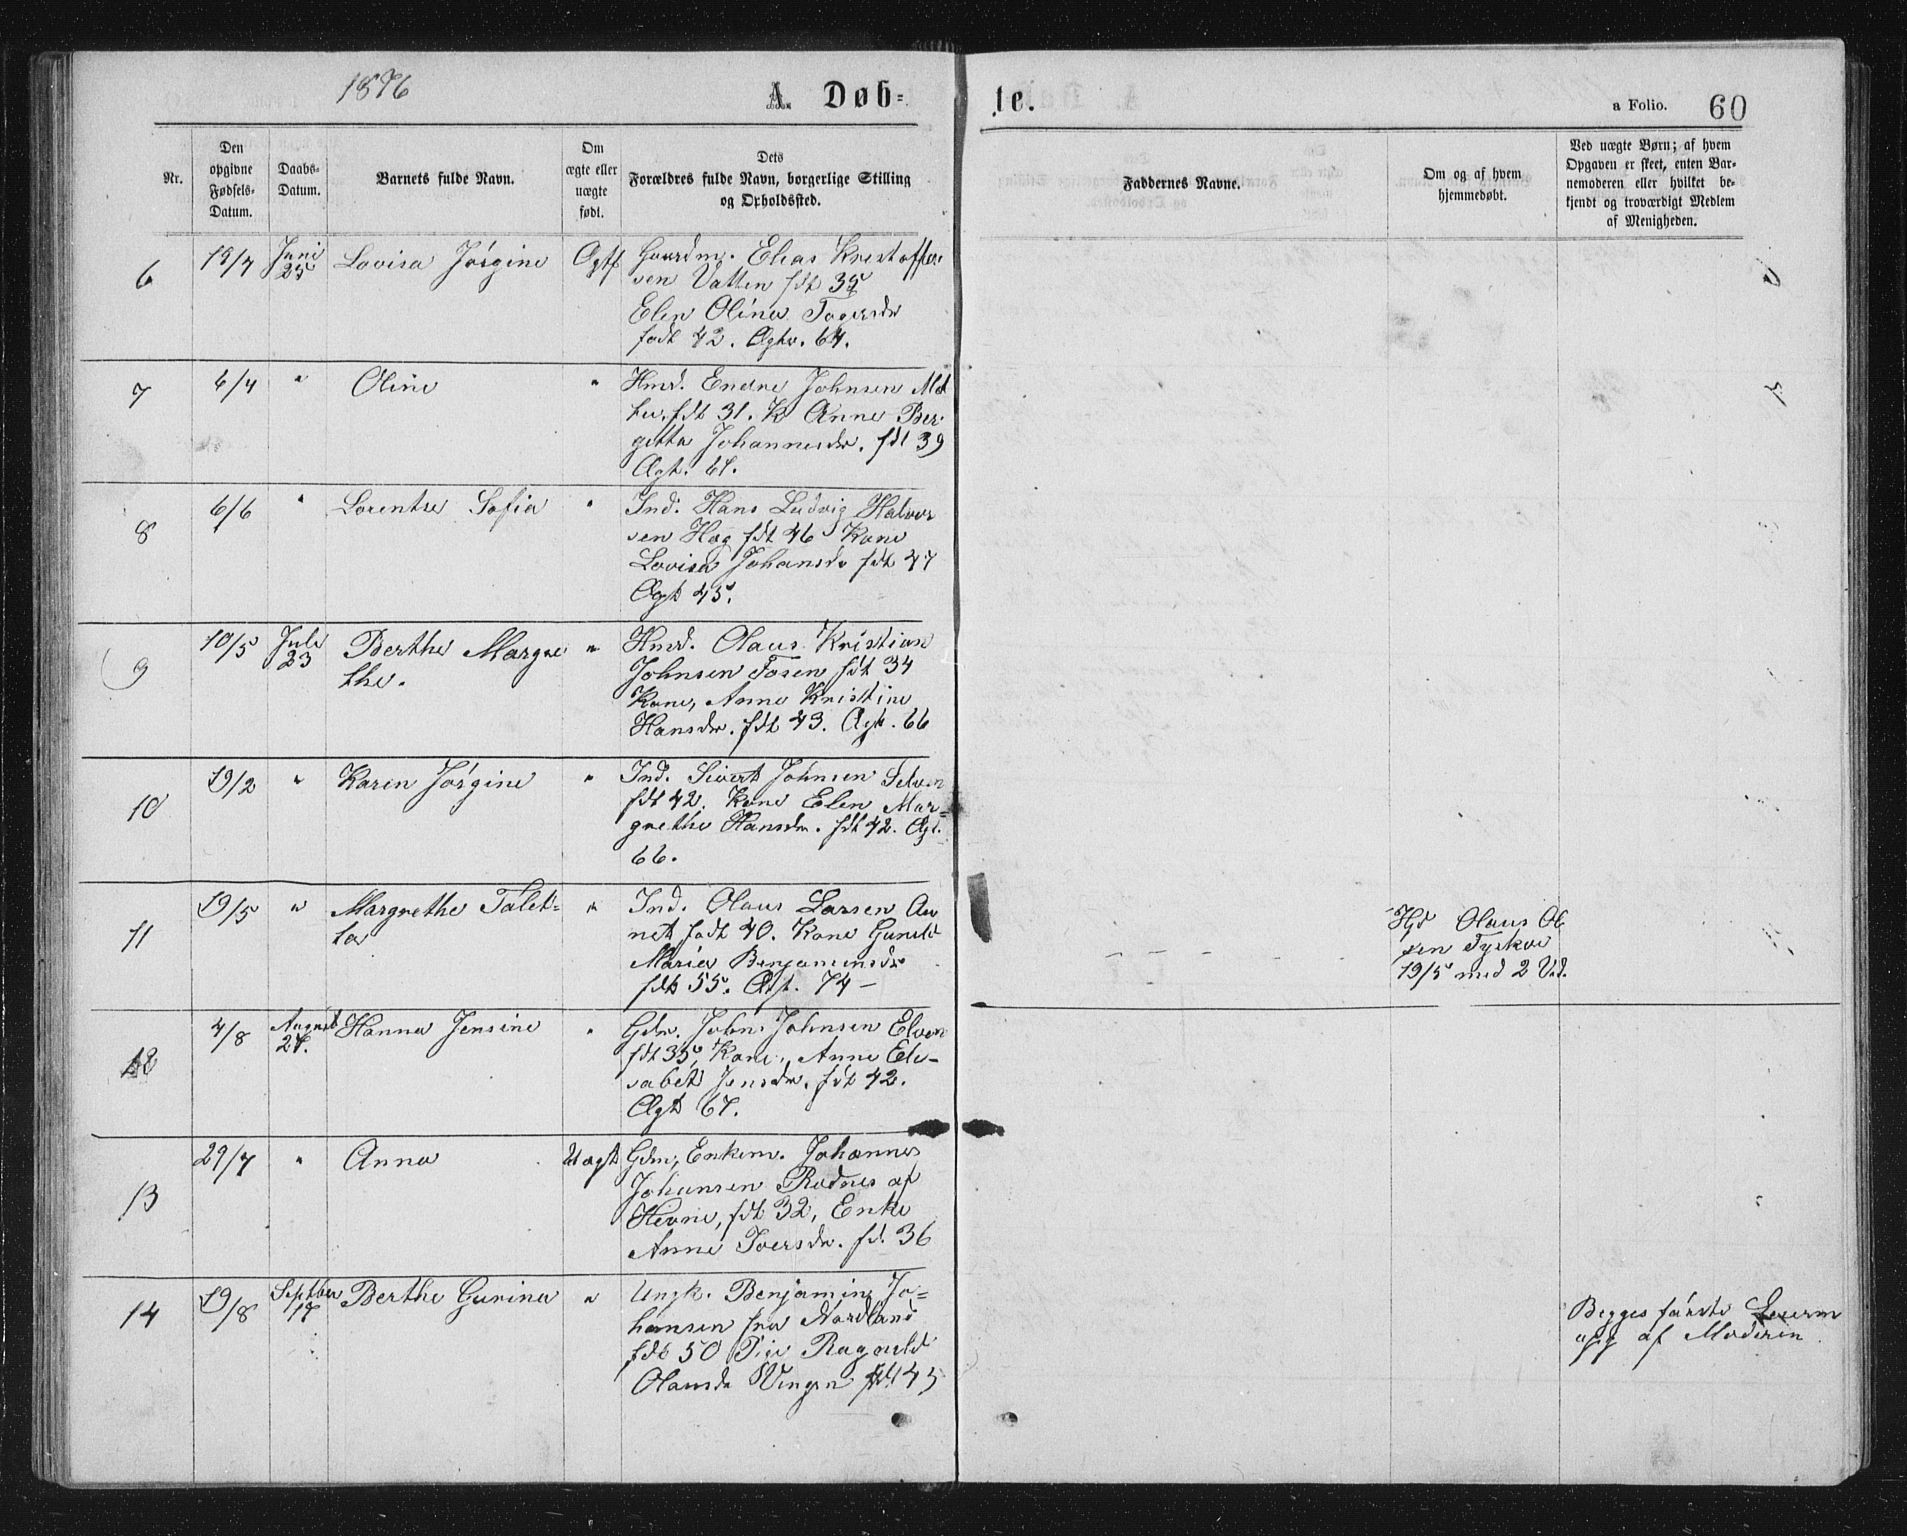 1876
A. Døb=
te.
a Folio. 60
Nr.
Den
opgivne
Fødsels-
Datum.
Daabs-
Datum.
Barnets fulde Navn.
Om
ægte eller
uægte
født.
Dets
Forældres fulde Navn, borgerlige Stilling
og Opholdssted.
Faddernes Navne.
Om og af hvem
hjemmedøbt.
Ved uægte Børn; af hvem
Opgaven er skeet, enten Bar-
nemoderen eller hvilket be-
kjendt og troværdigt Medlem
af Menigheden.
6
13/4
Juni
25
Lovisa Jørgine
Ægte
Gaardm. Elias Kristoffer
sen Vatten fdt 35
Elen Olina
født 42. Ægtv. 64.
7
6/4
"
Oline
"
Hmd. Endre Johnsen
fdt 31. K Anne Ber-
gitta Johannesdr. fdt 39
Ægt. 67.
8
6/6
"
Lorentse Sofia
"
Ind. Hans Ludvig Halvor
sen Hag fdt 46 Kone
Lovisa Johansdr fdt 47
Ægt 45.
9
10/5
Juli
23
Berthe Margre
the.
"
Hmd. Olaus Kristian
Johnsen Fosen fdt 34
Kone, Anne Kristine
Hansdr. fdt 43. Ægt. 66
10
19/2
"
Karen Jørgine
"
Ind. Sivert Johnsen Selven
fdt 42. Kone Elen Mar-
grethe Hansdr. fdt 42. Ægt.
66.
11
19/5
"
Margrethe Talet-
ta
"
Ind. Olaus Larsen Au
net født 40. Kone Gunild
Maria Benjaminsdr
fdt 55. Ægt. 74 –
Hjd Olaus Ol
sen Tyskø
19/5 med 2 Vid.
12
4/8
August
27.
Hanna Jensine
"
Gdm. John Johnsen Elven
fdt 35, Kone, Anne Ele-
sabet Jensdr. fdt 42.
Ægt 67.
13
29/7
"
Anna
Uægt
Gdm, Enkem. Johannes
Johansen Rødnes af
Hevne, fdt 32, Enke
Anne Iversdr. fd. 36
14
19/8
Septber
17
Berthe Gurina
"
Ungk. Benjamin Jo-
hansen fra Nordland
fdt 50 Pige Ragnild
Olausdr Vingen fdt 45
Begges første Leierm
opg af Moderen